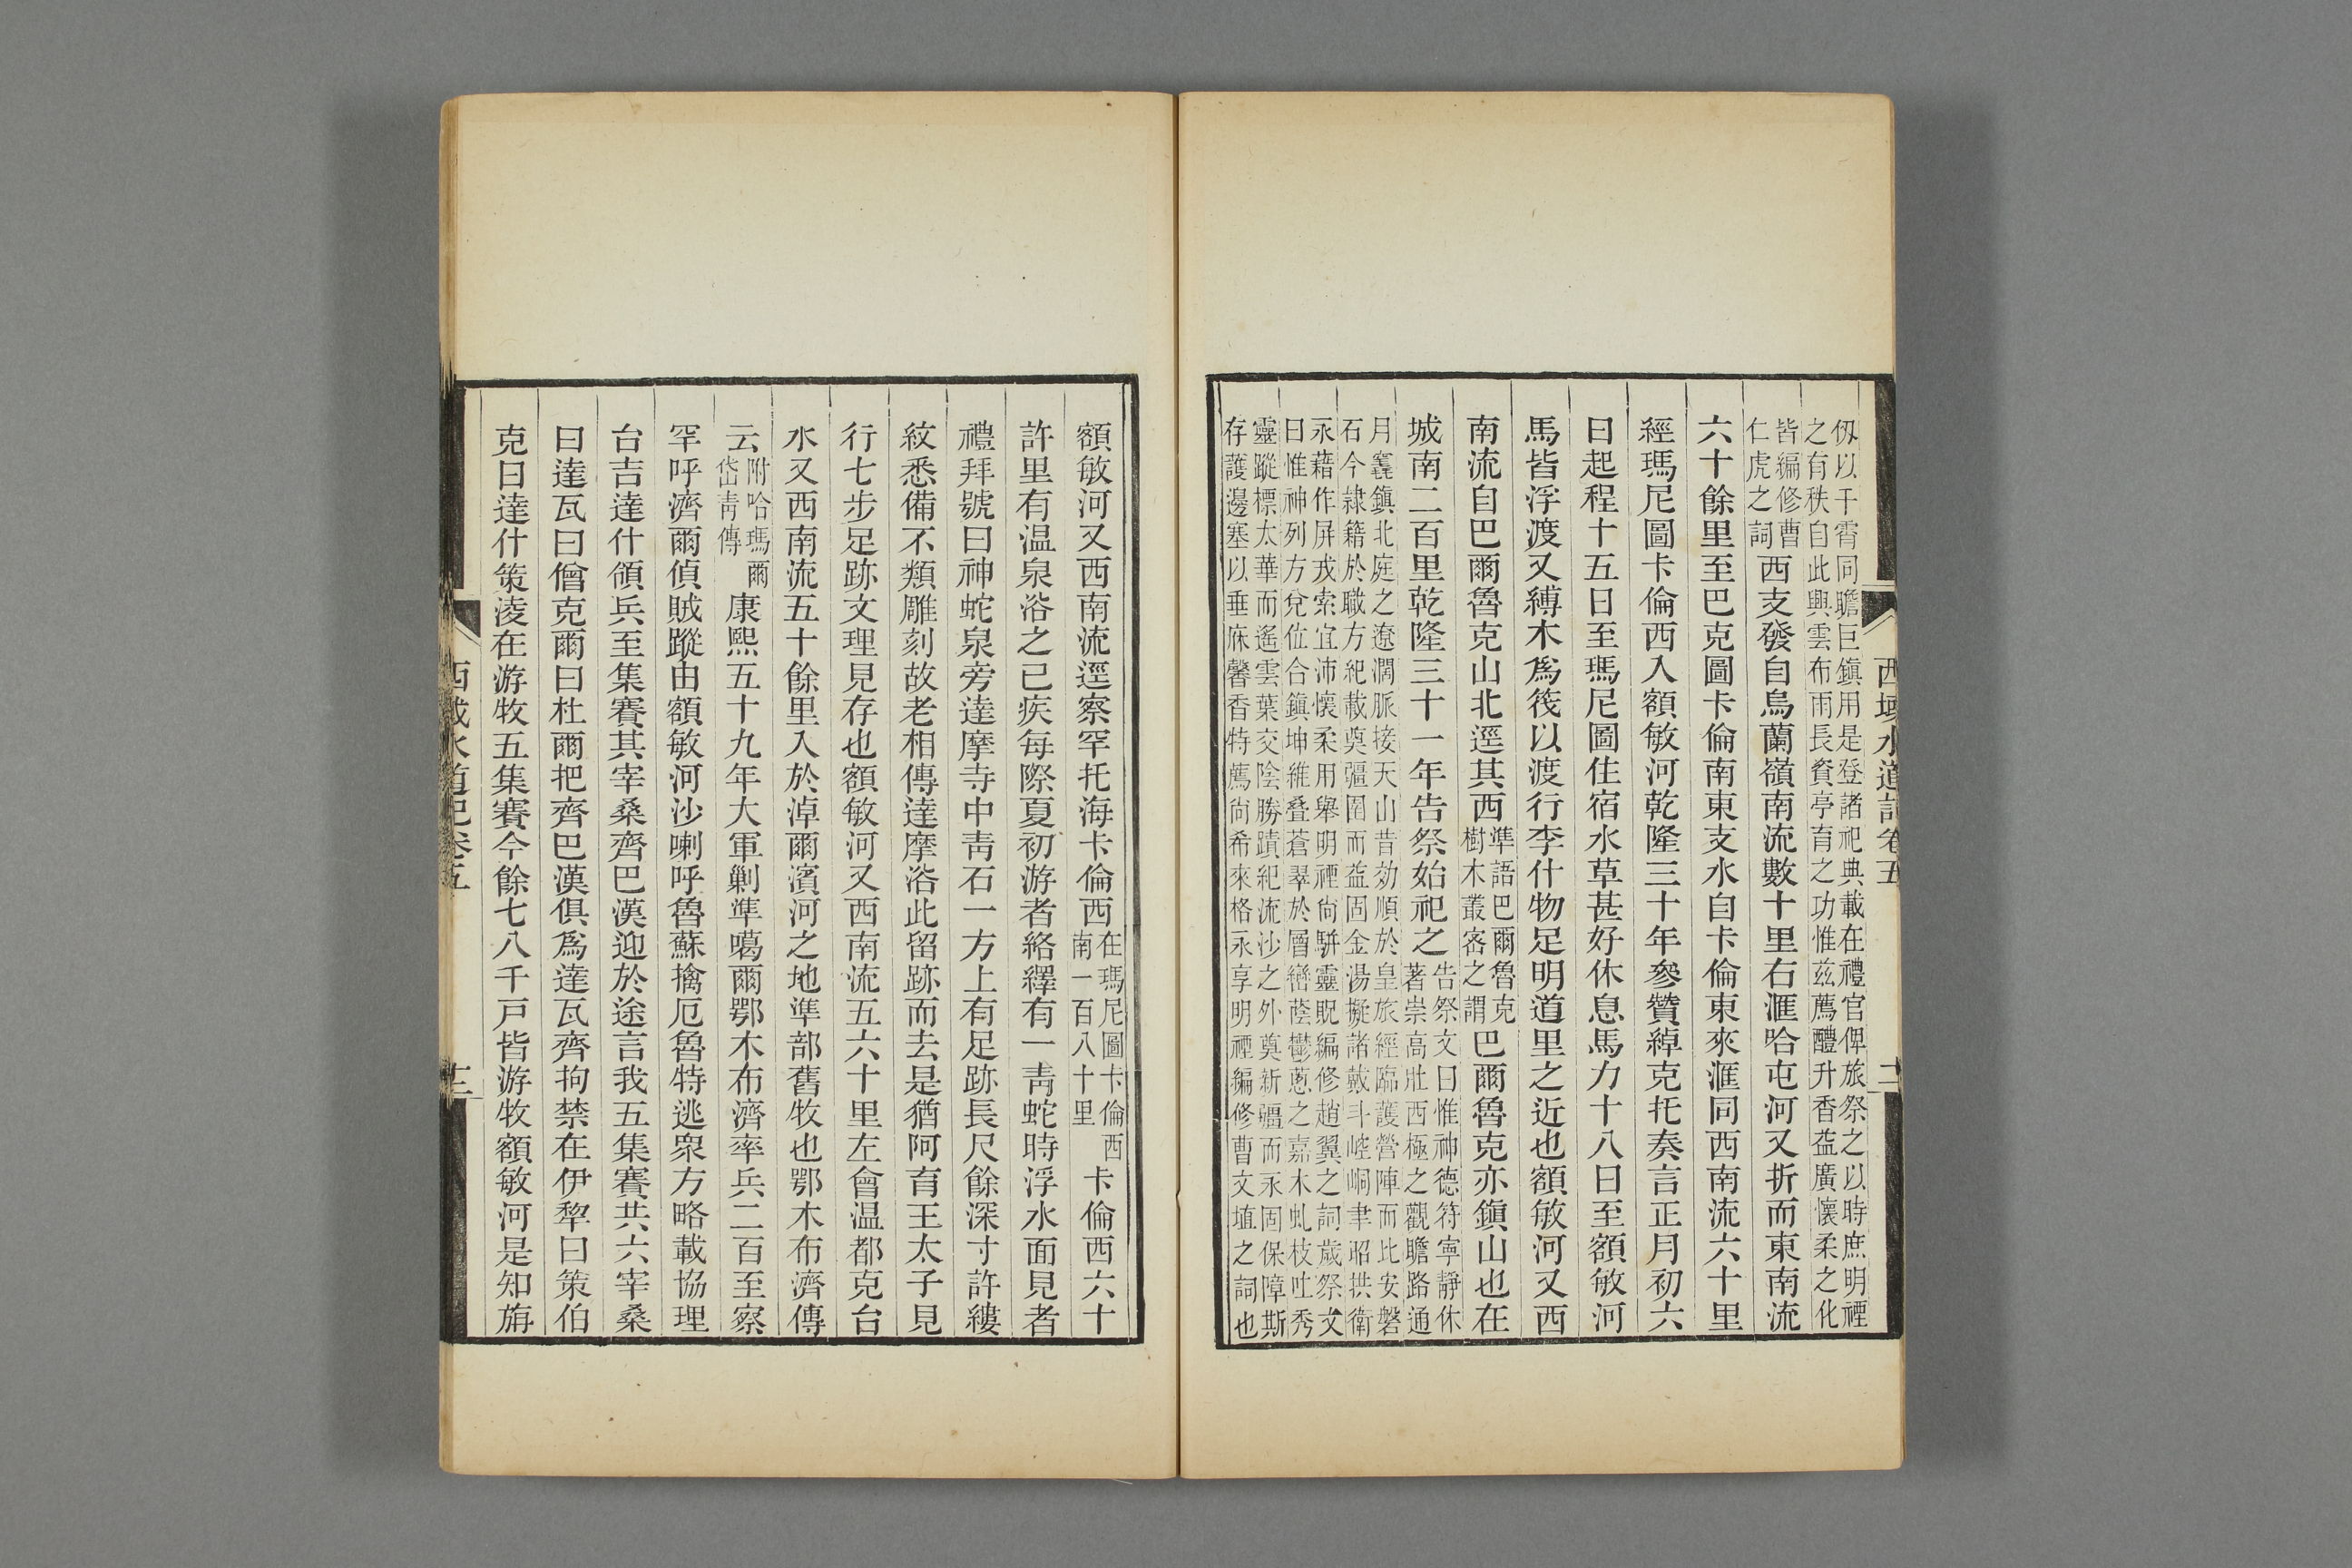 西域水道記卷五
二
仭以干霄同瞻巨鎭用是登諸祀典載在禮官俾旅祭之以時庶明禋
之有秩自此興雲布雨長資亭育之功惟茲薦醴升香益廣懷柔之化
皆編修曹
仁虎之詞
西支發自烏蘭嶺南流數十里右滙哈屯河又折而東南流
六十餘里至巴克圖卡倫南東支水自卡倫東來滙同西南流六十里
經瑪尼圖卡倫西入額敏河乾隆三十年參贊綽克托奏言正月初六
日起程十五日至瑪尼圖住宿水草甚好休息馬力十八日至額敏河
馬皆浮渡又縛木爲筏以渡行李什物足明道里之近也額敏河又西
南流自巴爾魯克山北逕其西
準語巴爾魯克
樹木叢密之謂
巴爾魯克亦鎭山也在
城南二百里乾隆三十一年告祭始祀之
告祭文曰惟神德符寧靜休
著崇高壯西極之觀瞻路通
月竁鎭北庭之遼濶脈接天山昔効順於皇旅經臨護營陣而比安磐
石今隷籍於職方紀載奠疆圉而益固金湯擬諸戴斗崆峒聿昭拱衛
永藉作屏戎索宜沛懷柔用舉明禋尙駢靈貺編修趙翼之詞歲祭文
曰惟神列方兌位合鎭坤維叠蒼翠於層巒蔭鬱蔥之嘉木虬枝吐秀
靈蹤標太華而遙雲葉交陰勝蹟紀流沙之外奠新疆而永固保障斯
存護邊塞以垂庥馨香特薦尙希來格永享明禋編修曹文埴之詞也
額敏河又西南流逕察罕托海卡倫西
在瑪尼圖卡倫西
南一百八十里
卡倫西六十
許里有温泉浴之已疾每際夏初游者絡繹有一靑蛇時浮水面見者
禮拜號曰神蛇泉旁達摩寺中靑石一方上有足跡長尺餘深寸許縷
紋悉備不類雕刻故老相傳達摩浴此留跡而去是猶阿育王太子見
行七步足跡文理見存也額敏河又西南流五六十里左會温都克台
水又西南流五十餘里入於淖爾濱河之地準部舊牧也鄂木布濟傳
云
附哈瑪爾
岱靑傳
康熙五十九年大軍剿準噶爾鄂木布濟率兵二百至察
罕呼濟爾偵賊蹤由額敏河沙喇呼魯蘇擒厄魯特逃衆方略載協理
台吉達什領兵至集賽其宰桑齊巴漢迎於途言我五集賽共六宰桑
曰達瓦曰僧克爾曰杜爾把齊巴漢俱爲達瓦齊拘禁在伊犂曰策伯
克曰達什策淩在游牧五集賽今餘七八千戸皆游牧額敏河是知旃
西域水道記卷五
三